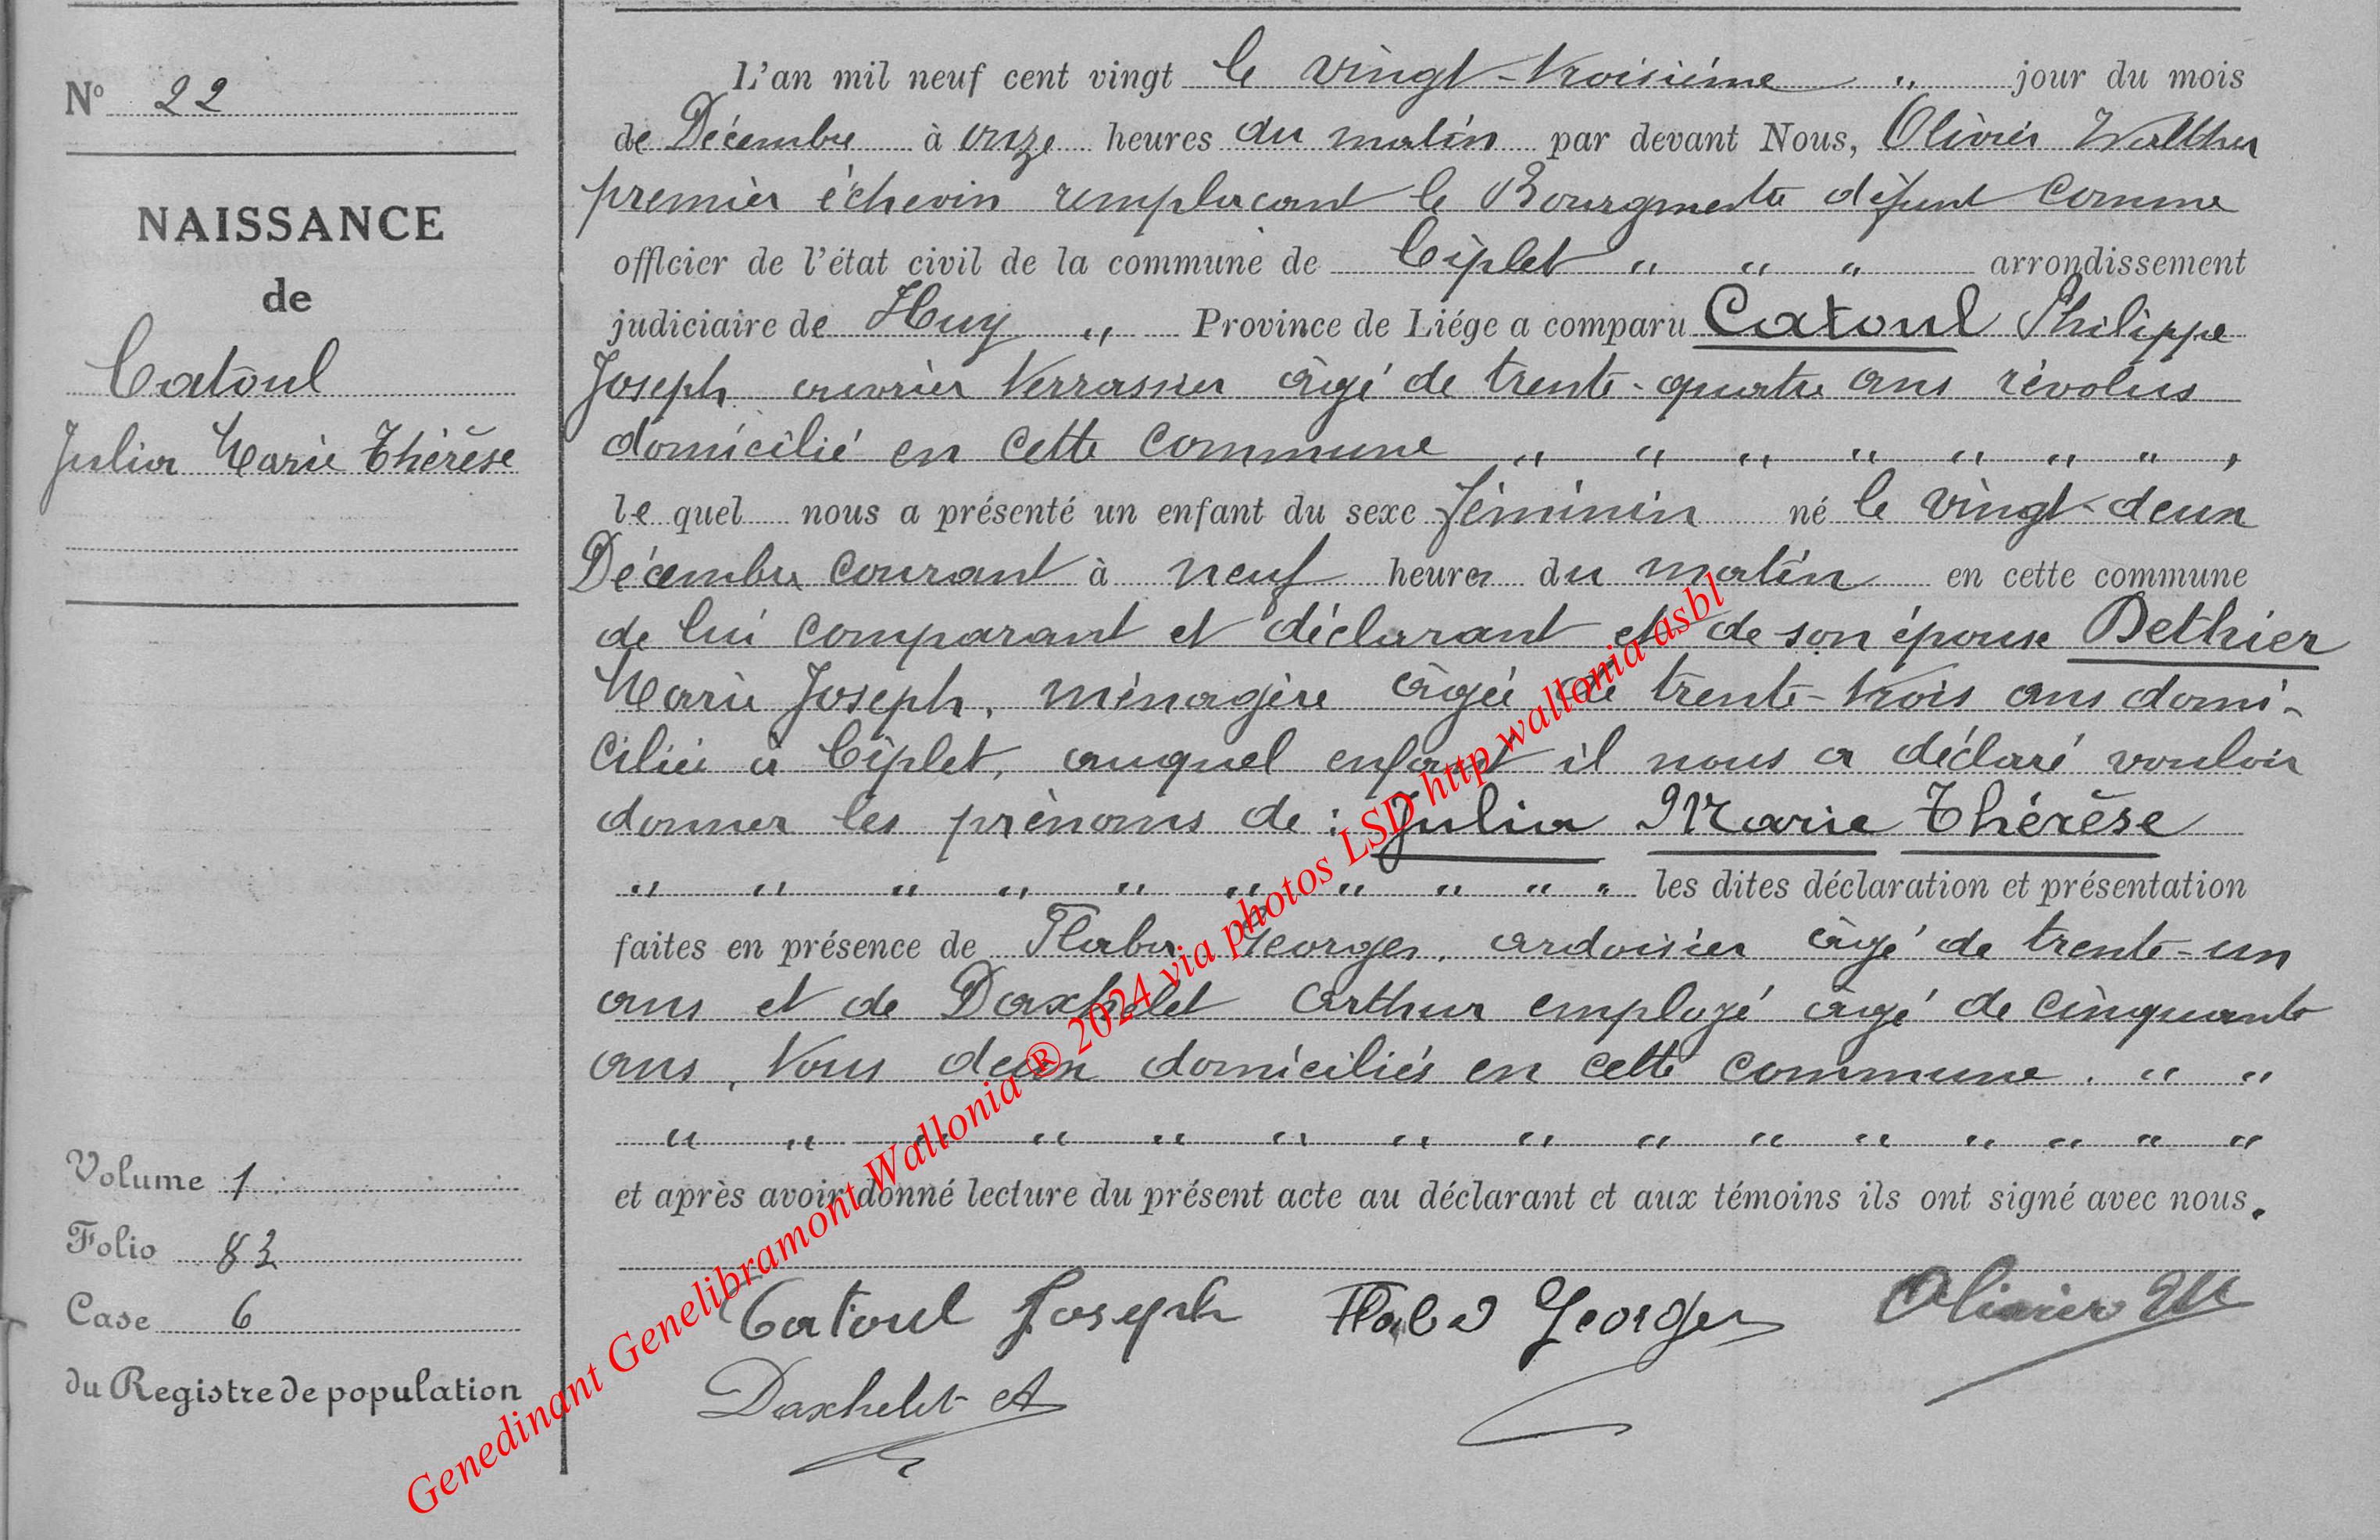 N° 22
NAISSANCE
de
Catoul
Julia Marie Thérèse
Volume 1
Folio 83
Case 6
du Registre de population
L'an mil neuf cent vingt le vingt-troisième " jour du mois
de Décembre à onze heures du matin par devant Nous, Olivier Walther
premier échevin remplacant le Bourgmestre défunt comme
officier de l'état civil de la commune de Ciplet " " " arrondissement
judiciaire de Huy " Province de Liége a comparu Catoul Philippe
Joseph ouvrier terrassier âgé de trente-quatre ans révolus
domicilié en cette commune " " " " " " " ,
le quel nous a présenté un enfant du sexe féminin né le vingt-deux
Décembre courant à neuf heures du matin en cette commune
de lui comparant et déclarant et de son épouse Dethier
Marie Joseph, ménagère âgée de trente-trois ans domi-
ciliée à Ciplet, auquel enfant il nous a déclaré vouloir
donner les prénoms de : Julia Marie Thérèse
" " " " " " " " " " les dites déclaration et présentation
faites en présence de Flaba Georges, ardoisier âgé de trente-un
ans et de Daxhelet Arthur employé âgé de cinquante
ans, tous deux domiciliés en cette commune. " "
" " " " " " " " " " " " " " "
et après avoir donné lecture du présent acte au déclarant et aux témoins ils ont signé avec nous.
Catoul Joseph Flaba Georges Olivier W
Daxhelet A
Genedinant Genelibramont Wallonia ® 2024 via photos LSD http wallonia asbl